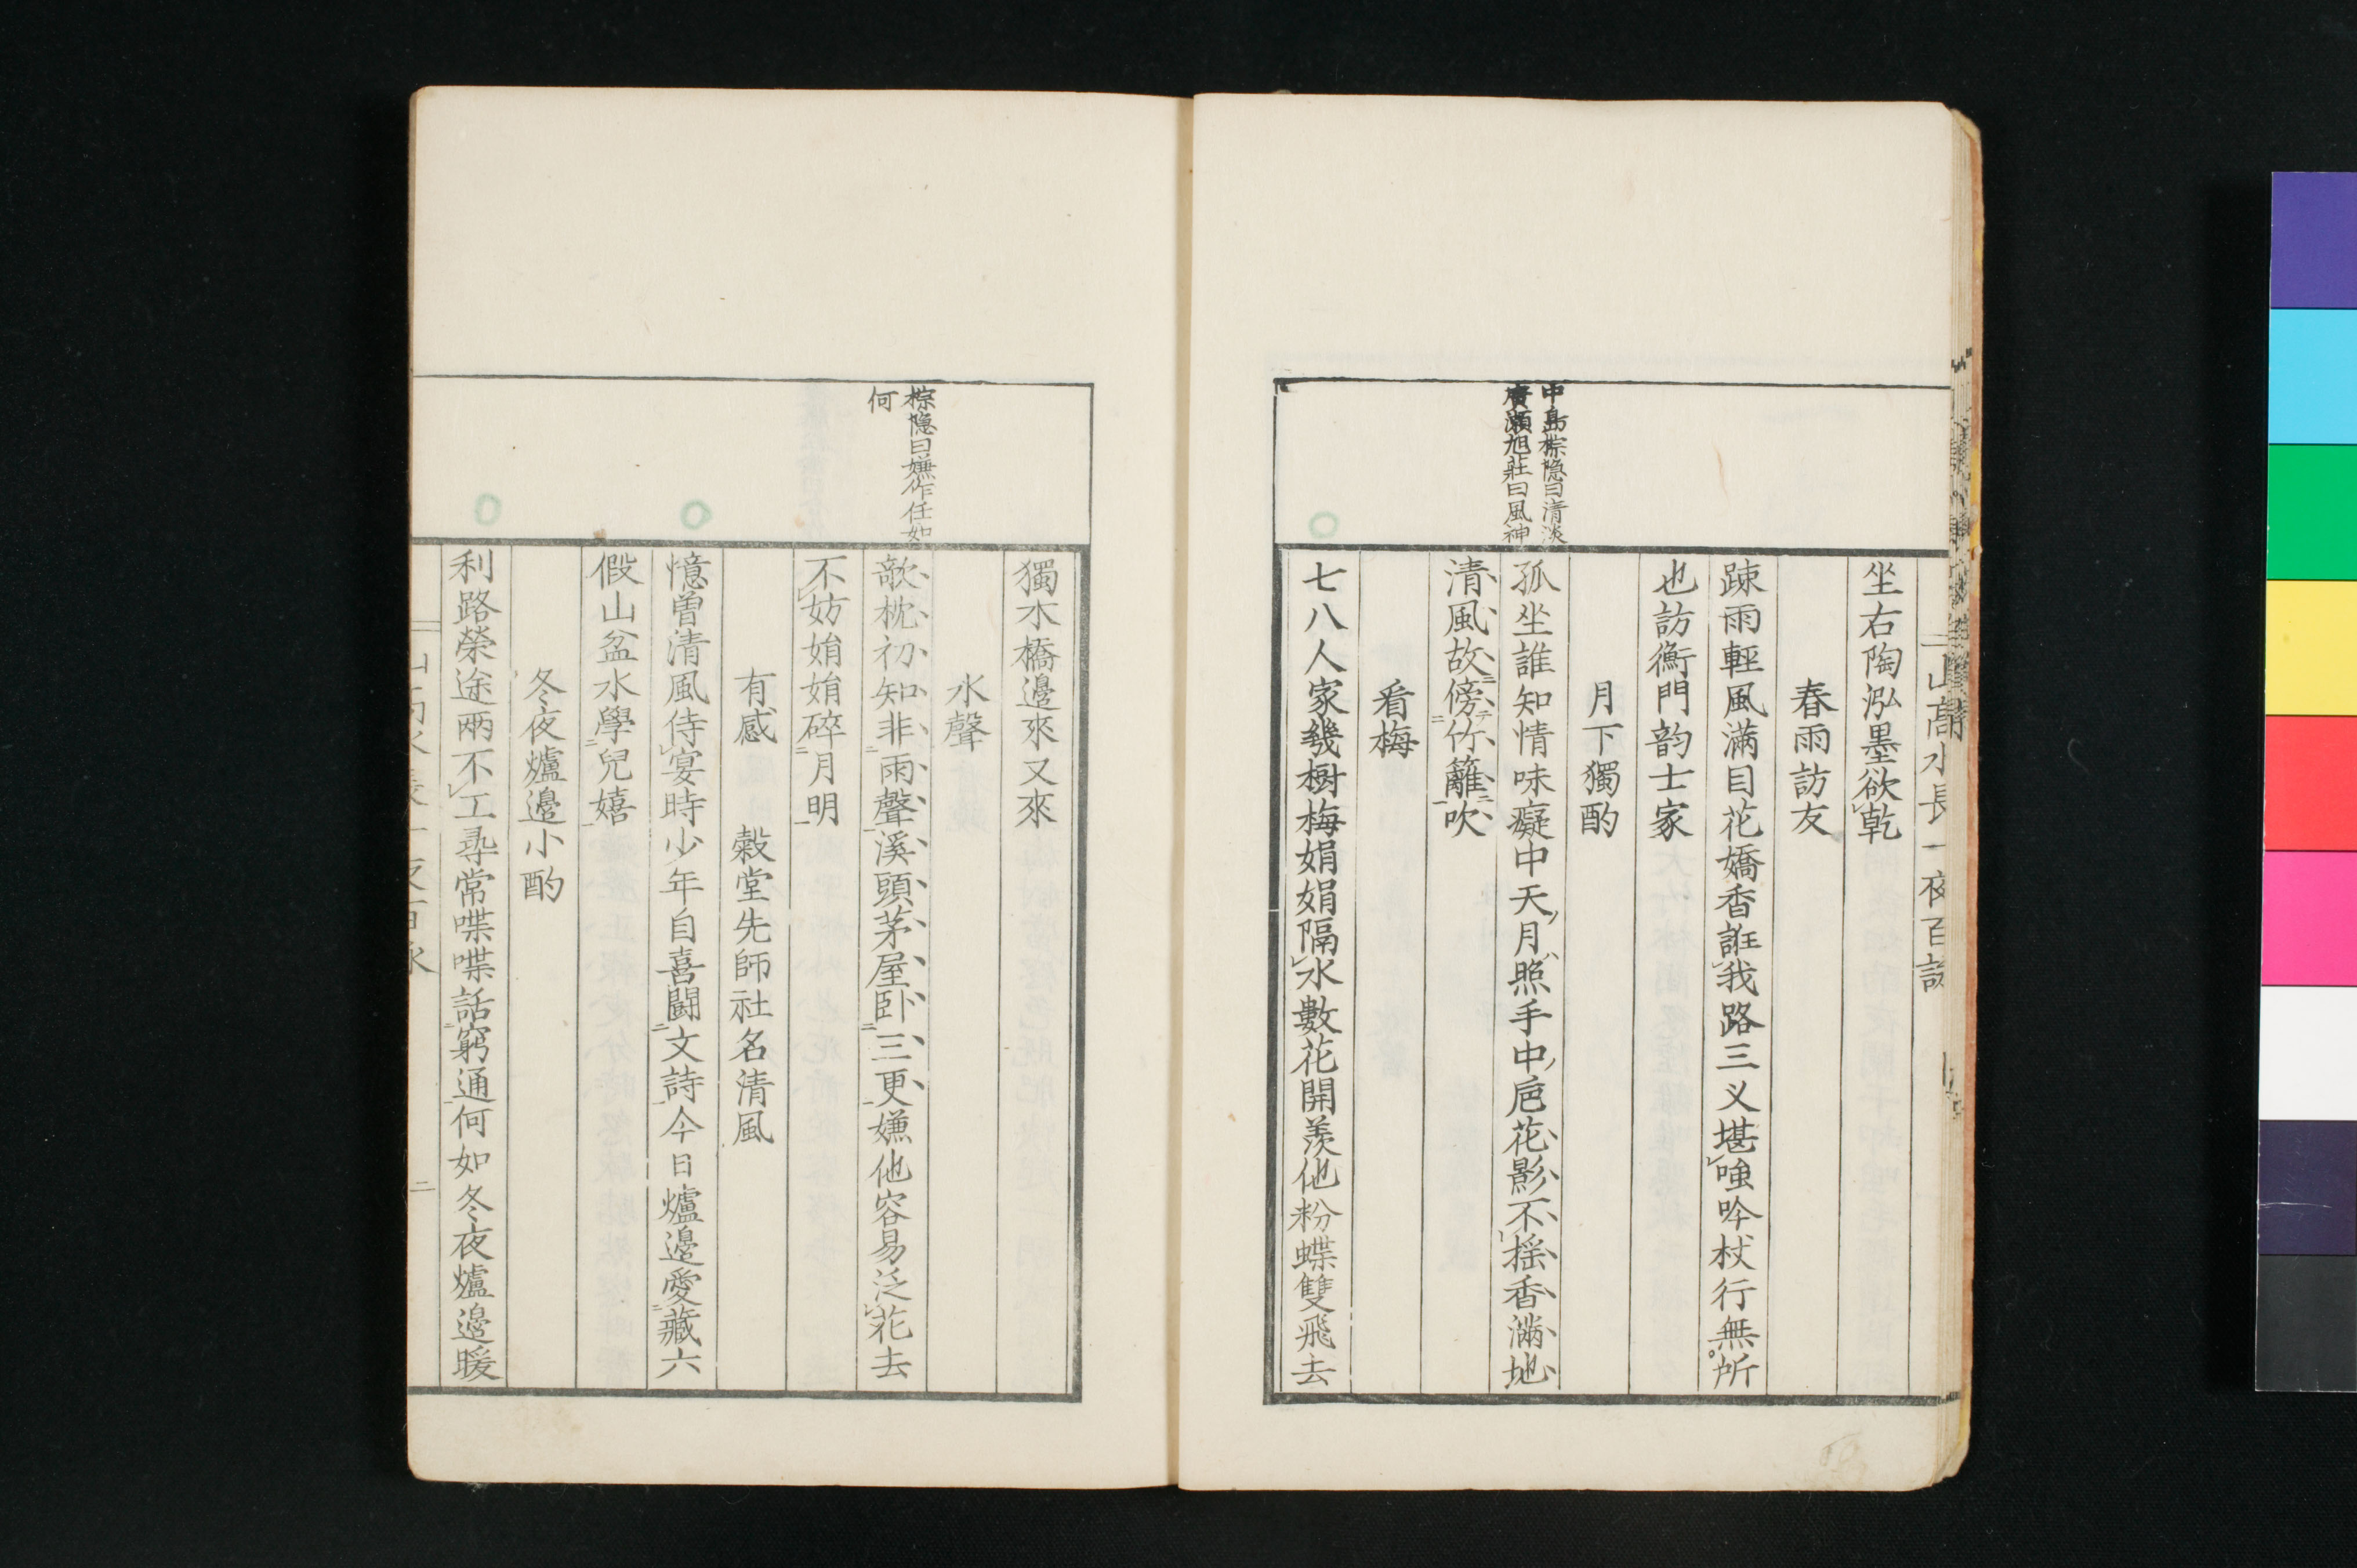 坐右陶泓墨欲乾
春雨訪友
疎雨輕風滿目花嬌香誑我路三义堪嗤吟杖行無所
也訪衡門韵士家
月下獨酌
中島棕隱曰清淡
廣瀬旭莊曰風神
孤坐誰知情味癡中天月照手中巵花影不揺香滿地
清風故傍竹籬吹
看梅
七八人家幾樹梅娟娟隔水數花開羨他粉蝶雙飛去
獨木橋邊來又來
水聲
棕隱曰嫌作任如
何
欹枕初知非雨聲溪頭茅屋卧三更嫌他容易泛花去
不妨娟娟碎月明
有感 穀堂先師社名清風
憶曽清風侍宴時少年自喜鬪文詩今日爐邊愛藏六
假山盆水學兒嬉
冬夜爐邊小酌
利路榮途兩不工尋常喋喋話窮通何如冬夜爐邊暖
山高水長一夜百詠
二